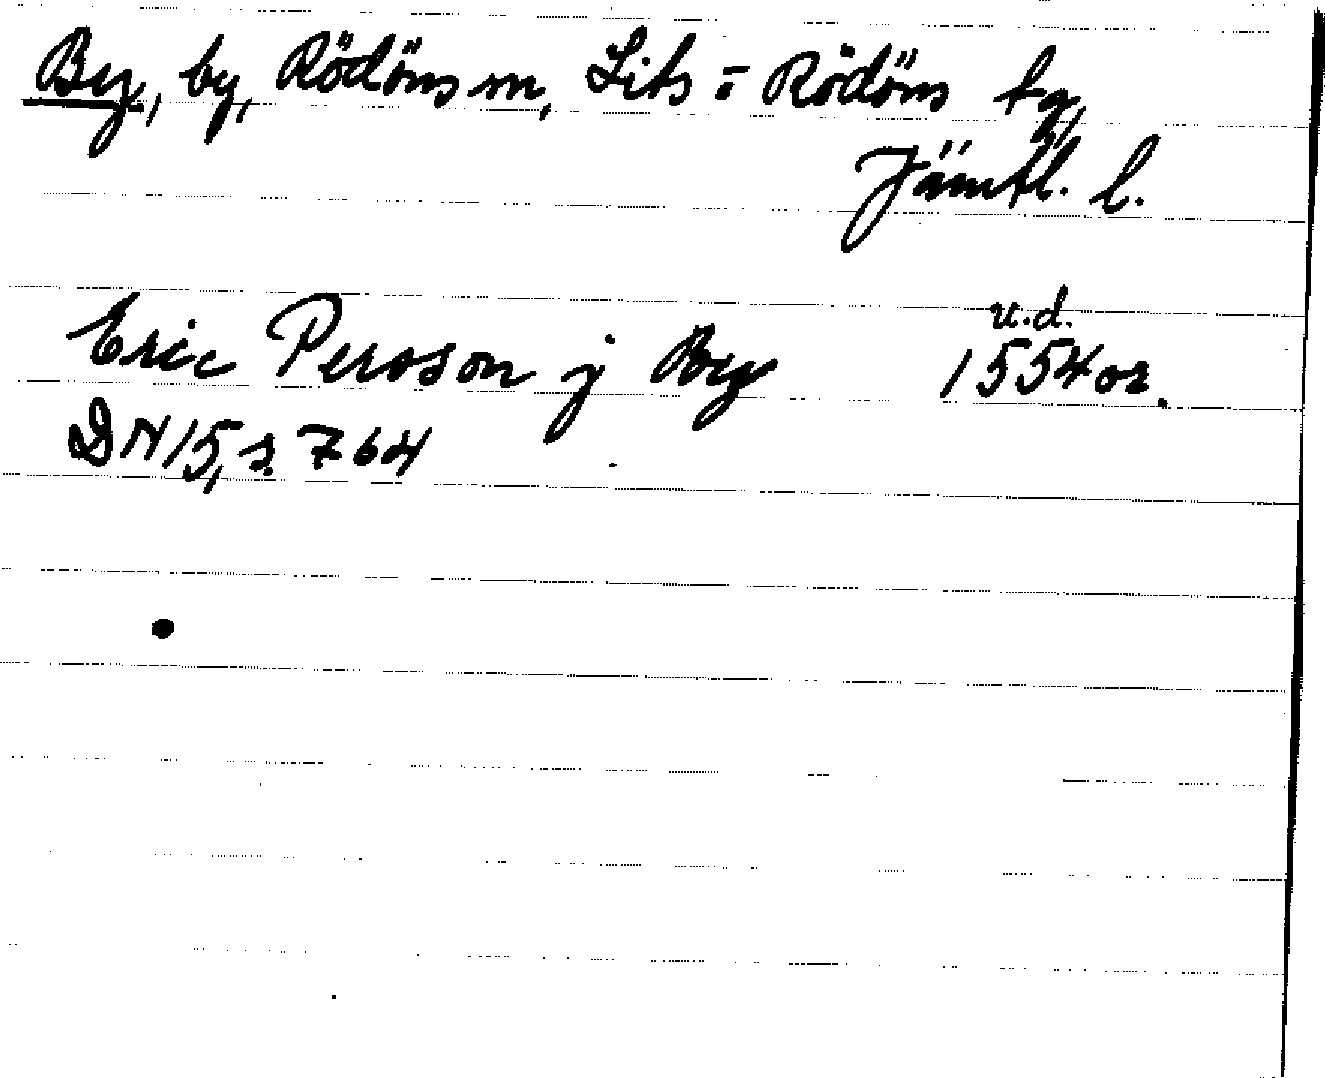 By, by, Rödöns sn, Lits o Rödöns tg,
Jämtl. l.
u.d.
Eric Persson j By 1554 or.
DN 15, s. 764